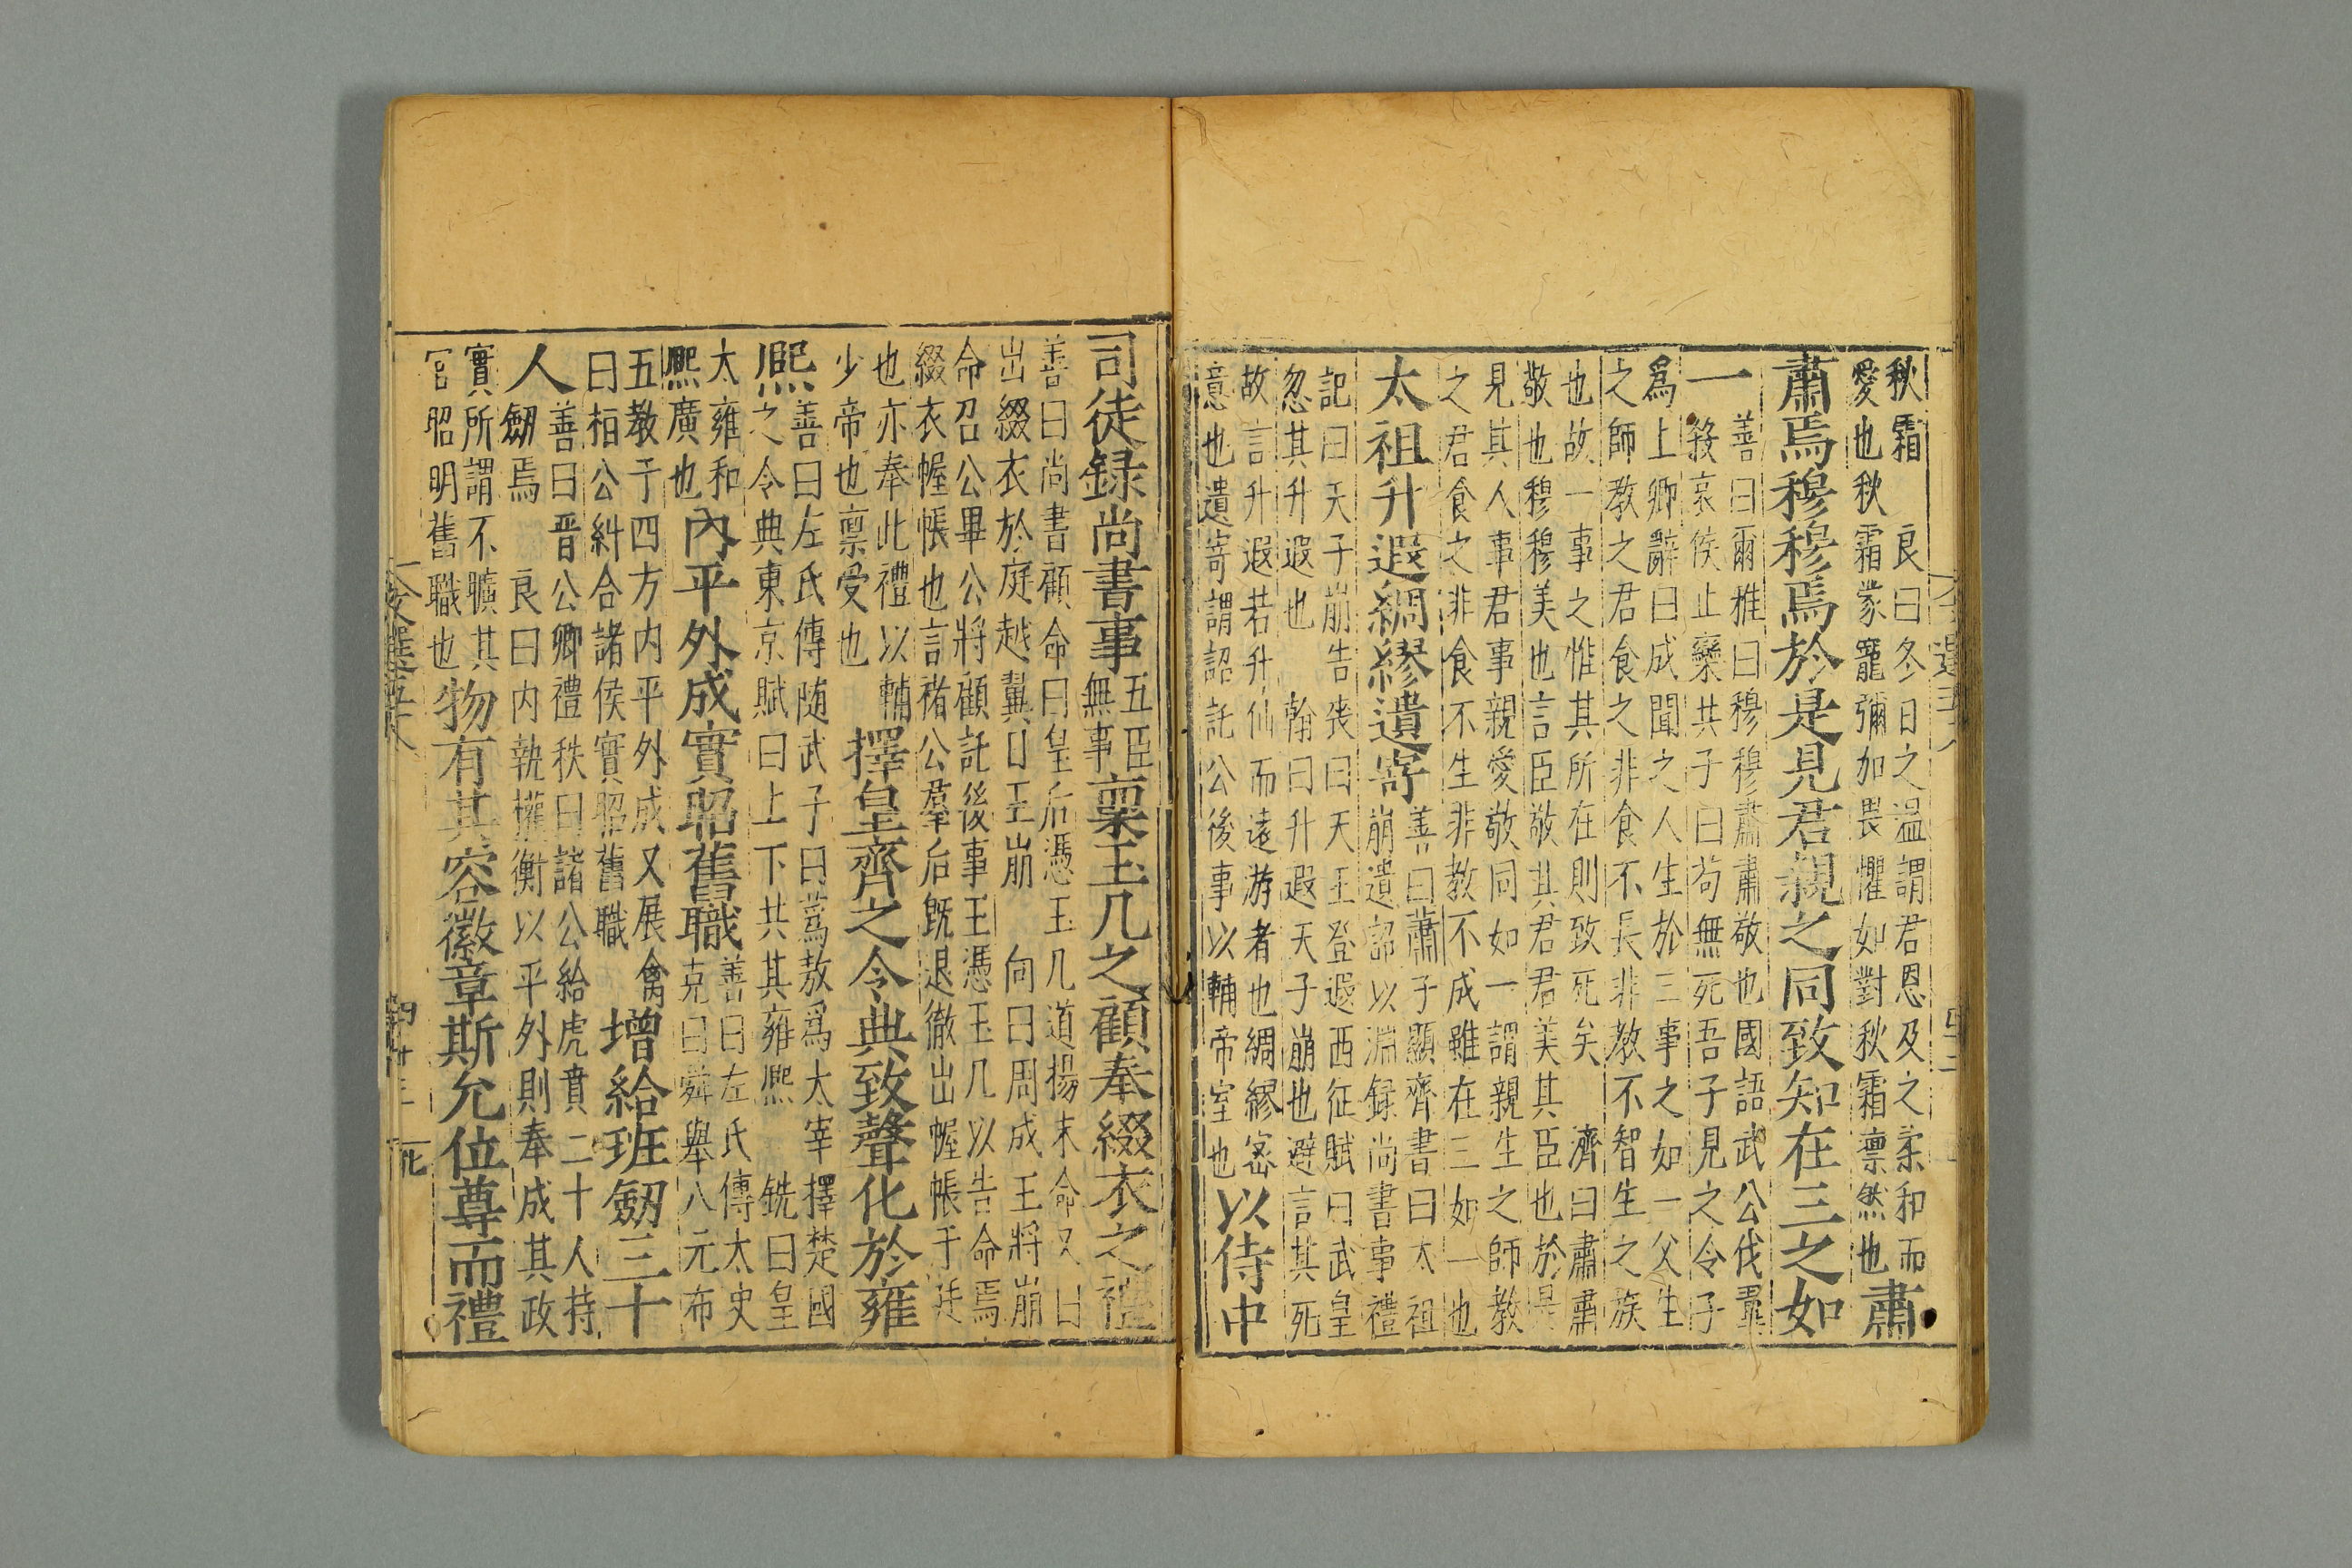 秋霜
良曰冬日之温謂君恩及之柔和而
愛也秋霜蒙寵彌加畏懼如對秋霜凛然也
肅
肅焉穆穆焉於是見君親之同致知在三之如
一
善曰爾雅曰穆穆肅肅敬也國語武公伐翼
殺哀侯止欒共子曰苟無死吾子見之令子
爲上卿辭曰成聞之人生於三事之如一父生
之師教之君食之非食不長非教不智生之族
也故一事之惟其所在則致死矣 濟曰肅肅
敬也穆穆美也言臣敬其君君美其臣也於是
見其人事君事親愛敬同如一謂親生之師教
之君食之非食不生非教不成雖在三如一也
太祖升遐綢繆遺寄
善曰蕭子顯齊書曰太祖
崩遺詔以淵錄尚書事禮
記曰天子崩告喪曰天王登遐西征賦曰武皇
忽其升遐也 翰曰升遐天子崩也避言其死
故言升遐若升仙而遠游者也綢繆密
意也遺寄謂詔託公後事以輔帝室也
以侍中
司徒録尚書事
五臣
無事
稟玉几之顧奉綴衣之禮
善曰尚書顧命曰皇后憑玉几道揚末命又曰
出綴衣於庭越翼日王崩 向曰周成王將崩
命召公畢公將顧託後事王憑玉几以告命焉
綴衣幄帳也言褚公羣后既退徹出幄帳于廷
也亦奉此禮以輔
少帝也稟受也
擇皇齊之令典致聲化於雍
熙
善曰左氏傳随武子曰蔿敖爲太宰擇楚國
之令典東京賦曰上下共其雍熙 銑曰皇
太雍和
熙廣也
內平外成實昭舊職
善曰左氏傳太史
克曰舜舉八元布
五教于四方内平外成又展禽
曰桓公糾合諸侯實昭舊職
増給班劒三十
人
善曰晋公卿禮秩曰諸公給虎賁二十人持
劒焉 良曰内執權衡以平外則奉成其政
實所謂不曠其
官昭明舊職也
物有其容徽章斯允位尊而禮